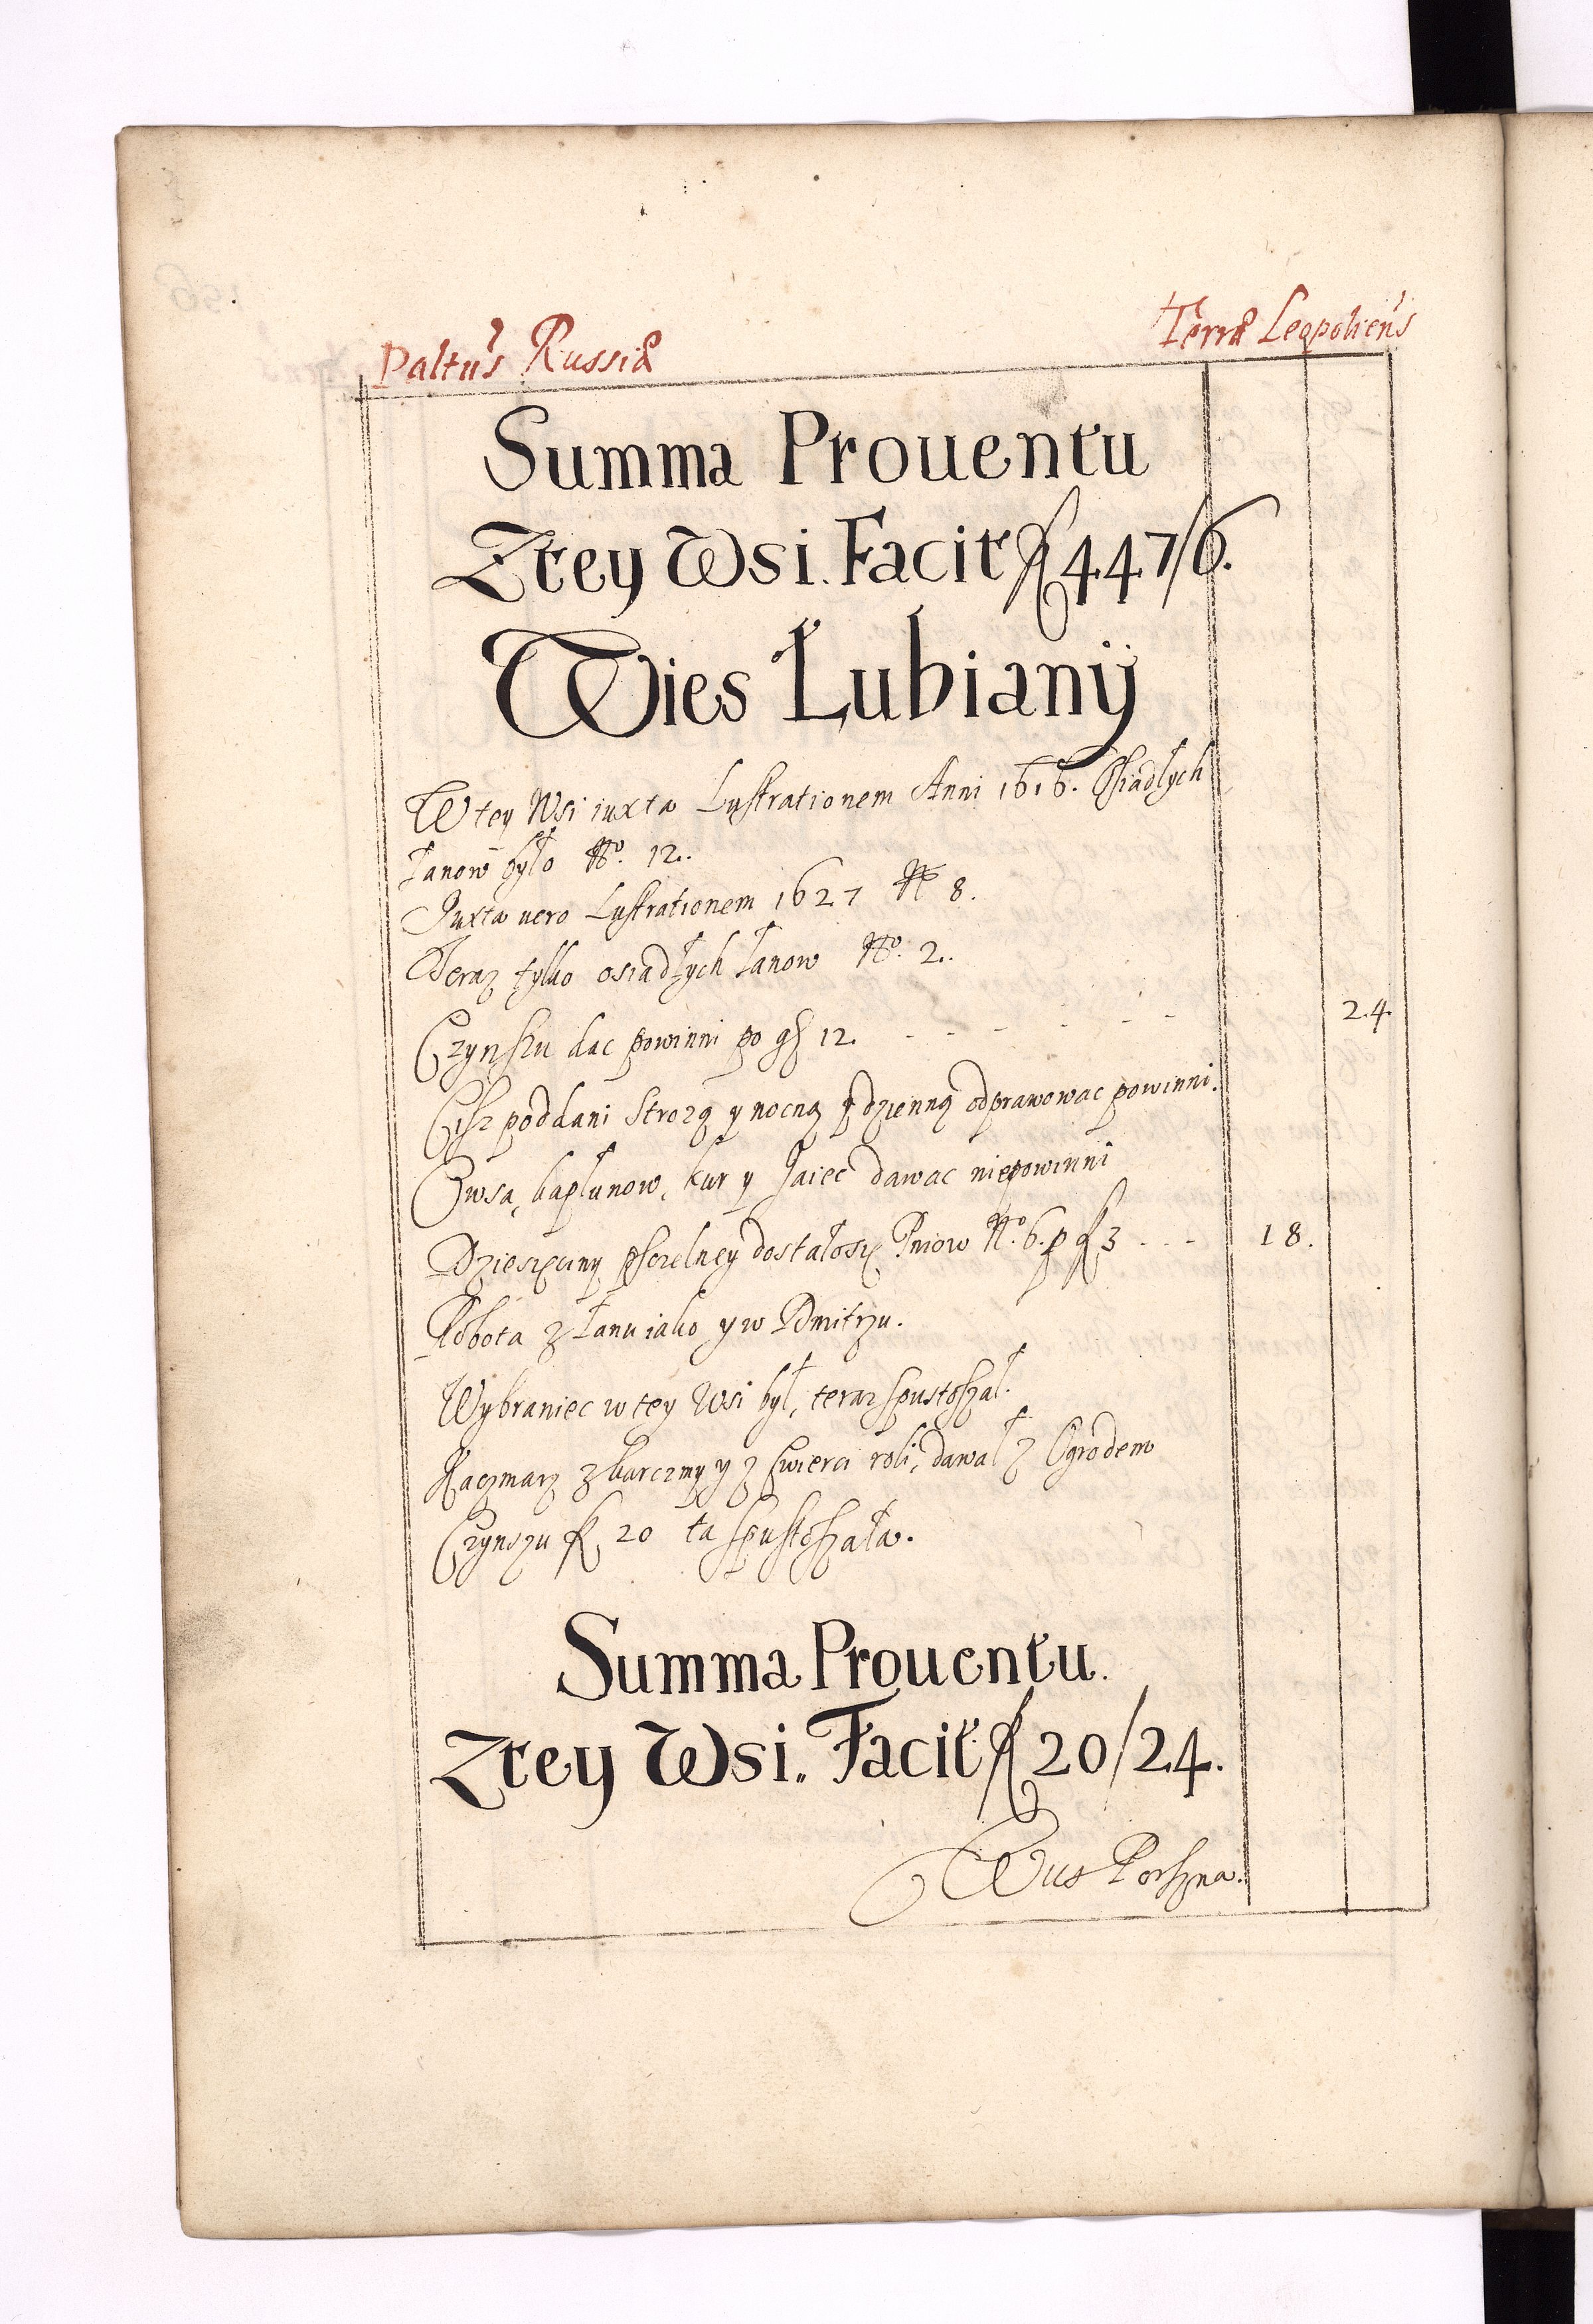 Paltus Russiæ
Terræ Leopoliens
Summa Prouentu
Z tey Wsi. Facit fl 447/6.
Wies Łubiany
W tey Wsi iuxta Lustrationem Anni 1616. Osiadłych
Łanow było No. 12.
Juxta uero Lustrationem 1627 No 8.
Teraz tylko osiadłych Łanow No. 2.
Czynszu dac powinni po gr 12. - - - - - - 24
Cisz poddani Strozą y nocną y dzienną odprawowac powinni.
Owsa, kapłunow, kur y Jaiec dawac niepowinni
Dziesięciny pszelney dostałosię Pniow No. 6. p fl 3 - - - 18.
Robota z Łanu iako y w Dmitrzu.
Wybraniec w tey Wsi był, teraz spustoszał.
Kaczmarz z karczmy y z cwierci roli, dawał z Ogrodem
Czynszu fl 20 ta spustoszała.
Summa Prouentu.
Z tey Wsi. Facit fl 20/24.
Wies Porszna.